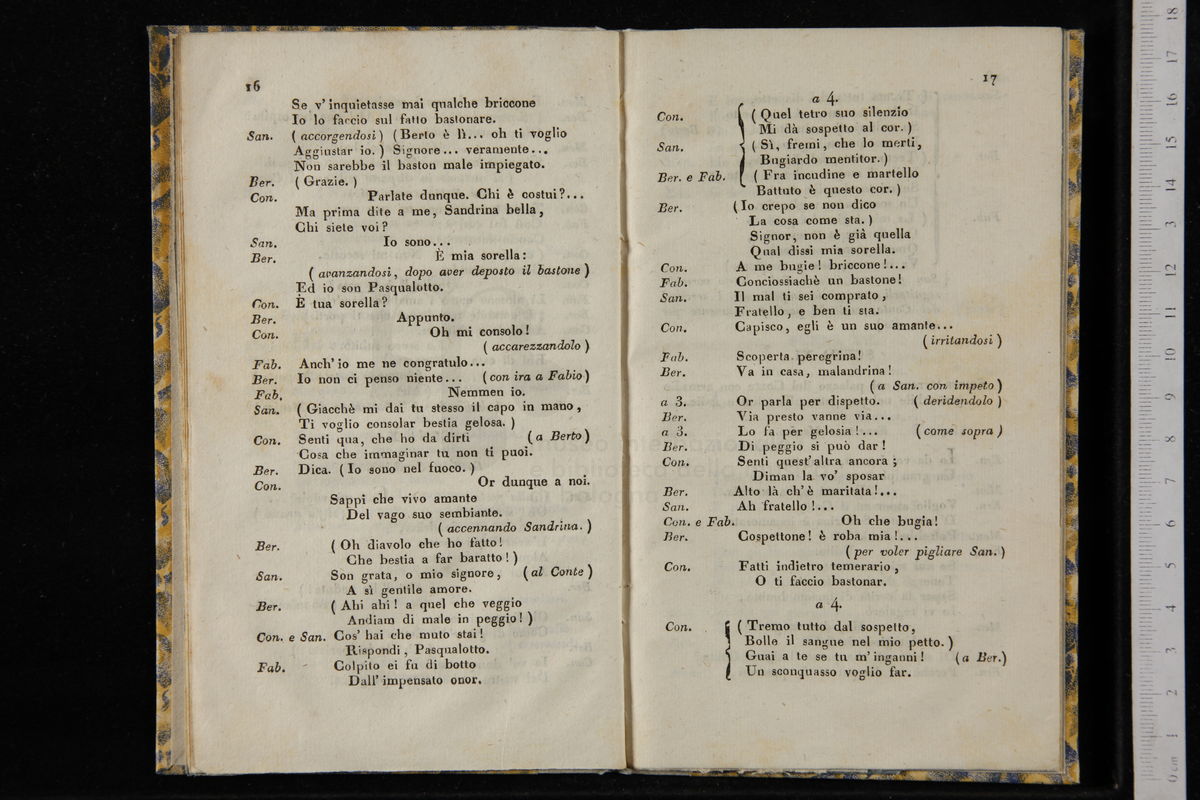 16
Se v' inquietasse mai qualche briccone
Io lo faccio sul fatto bastonare.
San. ( accorgendosi ) (Berto è lì... oh ti voglio
Aggiustar io. ) Signore... veramente...
Non sarebbe il baston male impiegato.
Ber. ( Grazie. )
Con. Parlate dunque. Chi è costui?...
Ma prima dite a me, Sandrina bella,
Chi siete voi?
San. Io sono...
Ber. È mia sorella:
( avanzandosi, dopo aver deposto il bastone )
Ed io son Pasqualotto.
Con. È tua sorella?
Ber. Appunto.
Con. Oh mi consolo!
( accarezzandolo )
Fab. Anch' io me ne congratulo...
Ber. Io non ci penso niente... (con ira a Fabio)
Fab. Nemmen io.
San. ( Giacchè mi dai tu stesso il capo in mano,
Ti voglio consolar bestia gelosa. )
Con. Senti qua, che ho da dirti (a Berto)
Cosa che immaginar tu non ti puoi.
Ber. Dica. (Io sono nel fuoco. )
Con. Or dunque a noi.
Sappi che vivo amante
Del vago suo sembiante.
( accennando Sandrina. )
Ber. ( Oh diavolo che ho fatto!
Che bestia a far baratto! )
San. Son grata, o mio signore, (al Conte)
A sì gentile amore.
Ber. ( Ahi ahi! a quel che veggio
Andiam di male in peggio! )
Con. e San. Cos' hai che muto stai!
Rispondi, Pasqualotto.
Fab. Colpito ei fu di botto
Dall' impensato onor.
17
a 4.
Con. ( Quel tetro suo silenzio
Mi dà sospetto al cor. )
San. ( Sì, fremi, che lo merti,
Bugiardo mentitor. )
Ber. e Fab. ( Fra incudine e martello
Battuto è questo cor. )
Ber. (Io crepo se non dico
La cosa come sta. )
Signor, non è già quella
Qual dissi mia sorella.
Con. A me bugie! briccone!...
Fab. Conciossiachè un bastone!
San. Il mal ti sei comprato,
Fratello, e ben ti sta.
Con. Capisco, egli è un suo amante...
( irritandosi )
Fab. Scoperta peregrina!
Ber. Va in casa, malandrina!
(a San. con impeto)
a 3. Or parla per dispetto. ( deridendolo )
Ber. Via presto vanne via...
a 3. Lo fa per gelosia!... (come sopra)
Ber. Di peggio si può dar!
Con. Senti quest' altra ancora;
Diman la vo' sposar
Ber. Alto là ch' è maritata!...
San. Ah fratello!...
Con. e Fab. Oh che bugia!
Ber. Cospettone! è roba mia!...
(per voler pigliare San.)
Con. Fatti indietro temerario,
O ti faccio bastonar.
a 4.
Con. ( Tremo tutto dal sospetto,
Bolle il sangue nel mio petto. )
Guai a te se tu m' inganni! (a Ber.)
Un sconquasso voglio far.